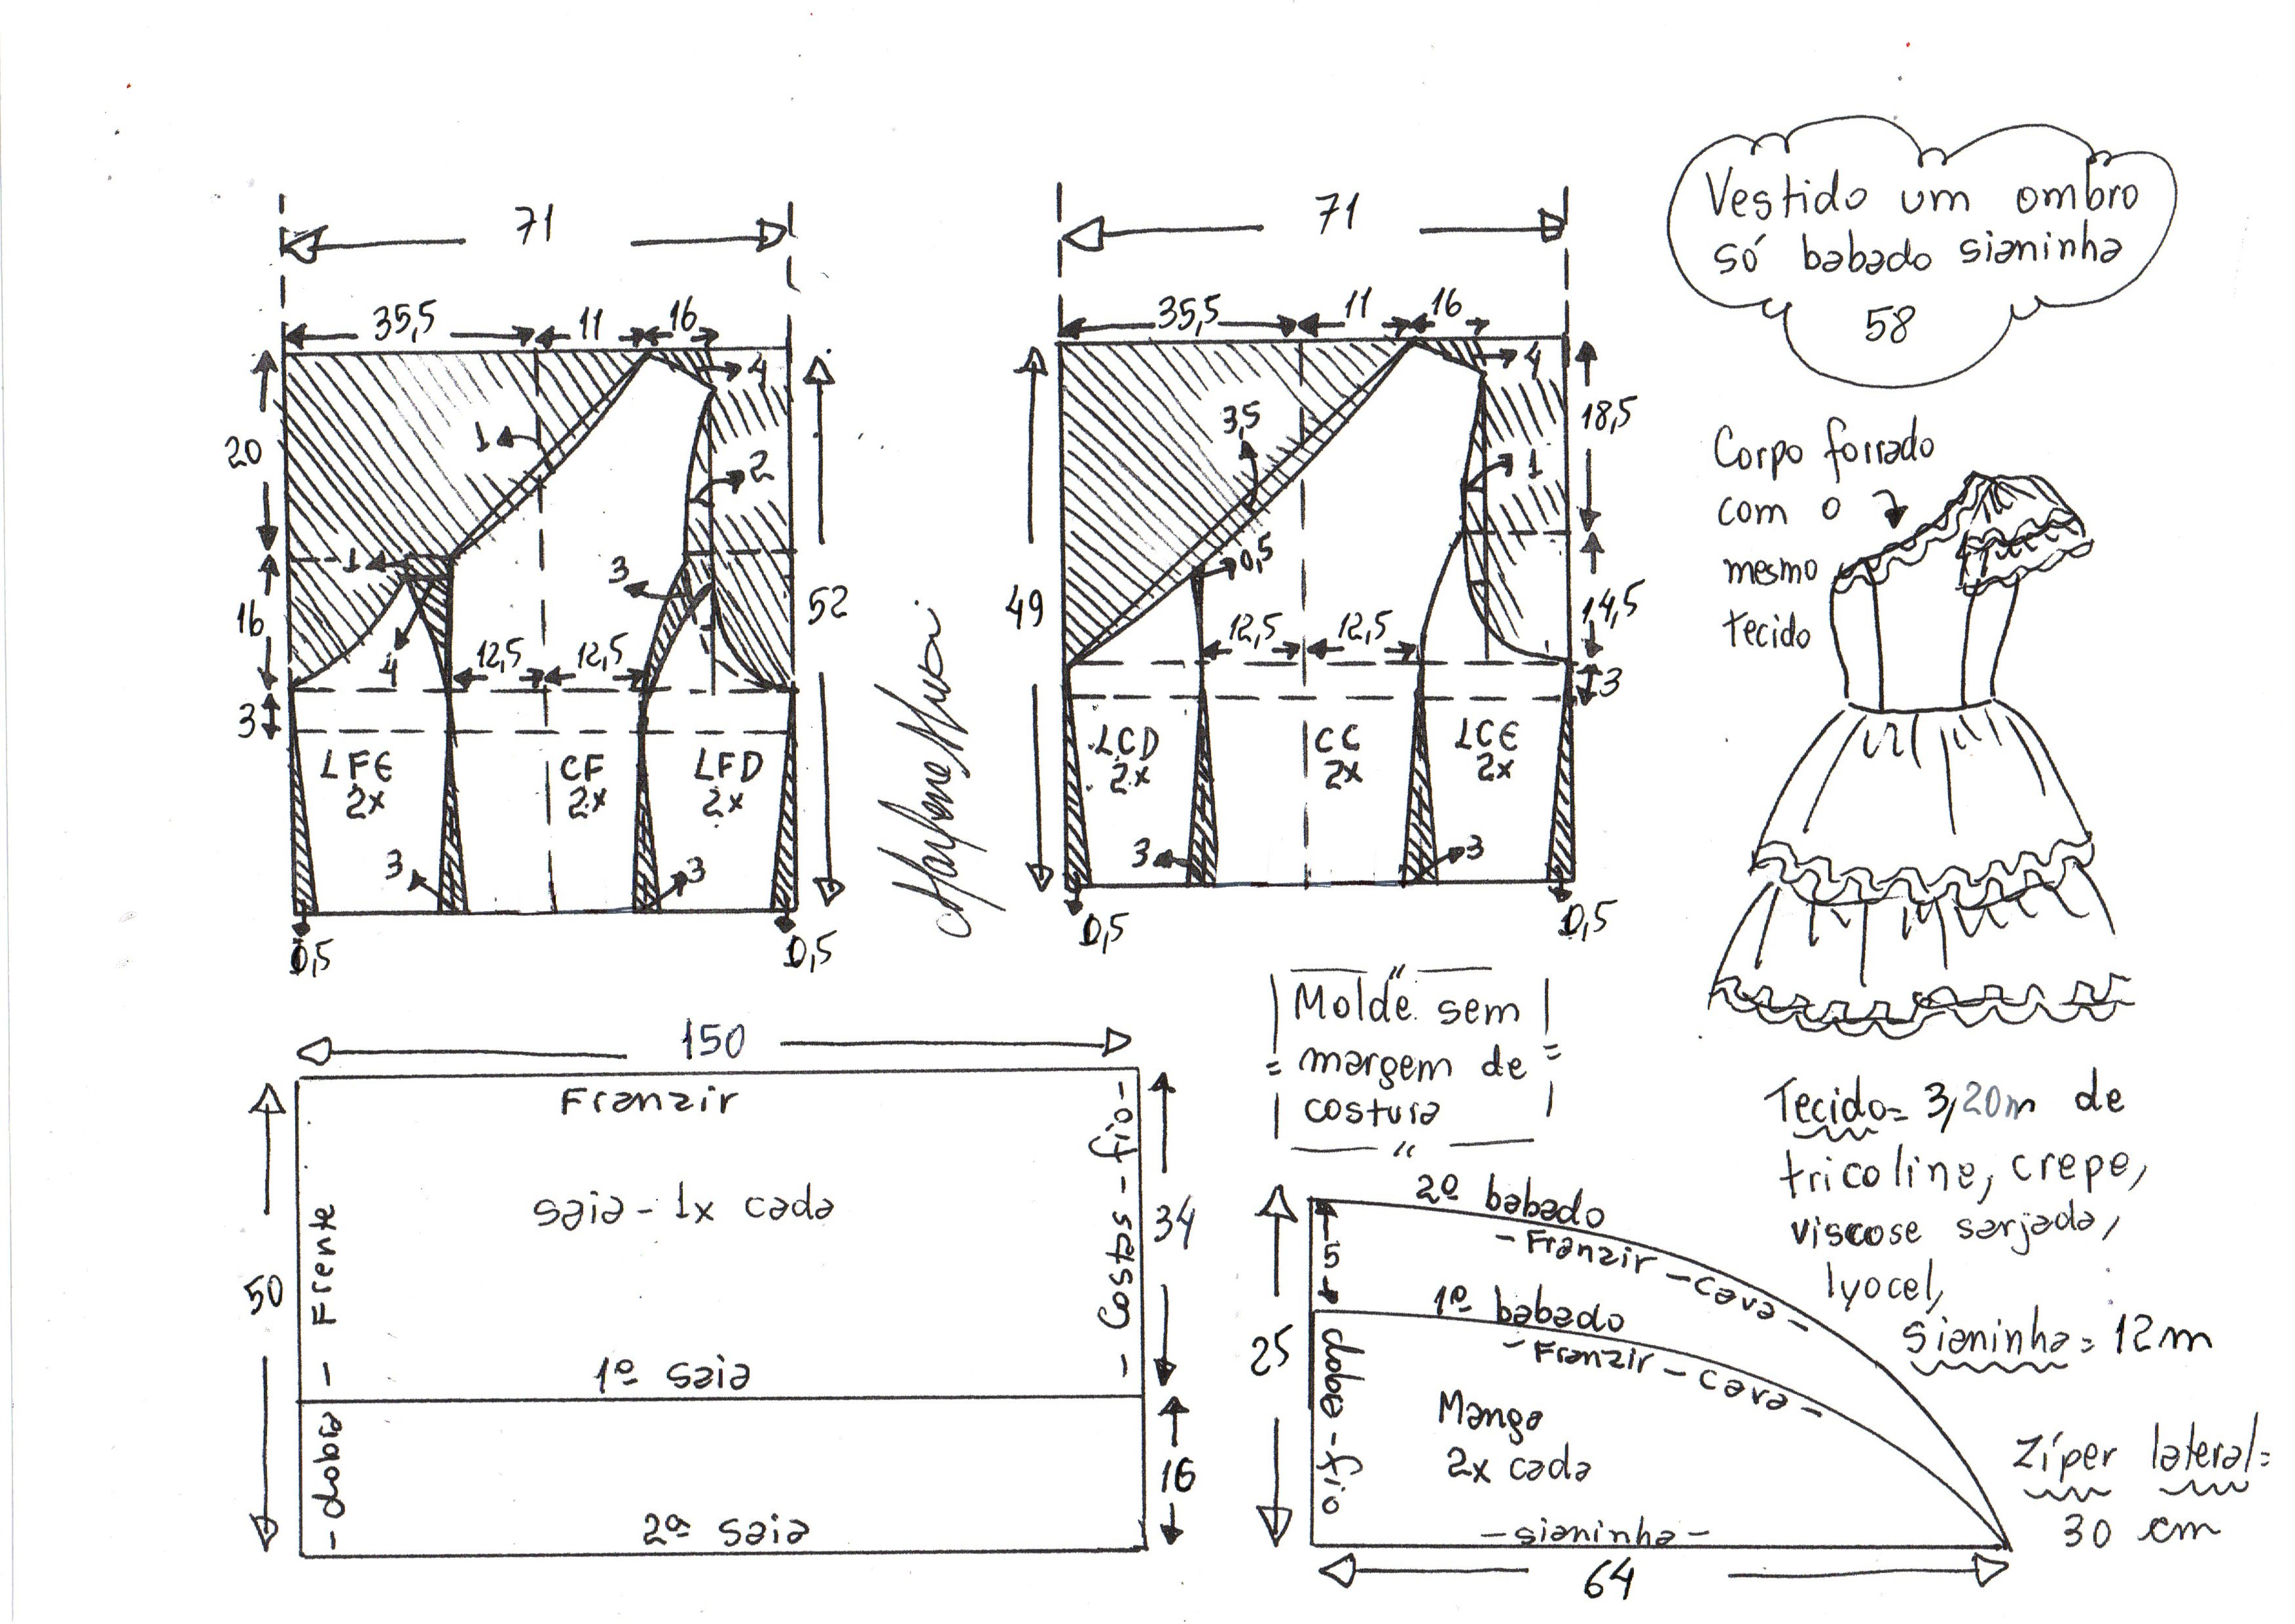 71
35,5
11
16
4
1
2
20
1
3
16
4
12,5
12,5
52
3
LFE
2x
CF
2x
LFD
2x
3
3
0,5
0,5
71
35,5
11
16
4
3,5
1
18,5
0,5
49
12,5
12,5
14,5
3
LCD
2x
CC
2x
LCE
2x
3
3
0,5
0,5
Vestido um ombro
só babado sianinha
58
Corpo forrado
com o
mesmo
tecido
Molde sem
margem de
costura
150
Franzir
50
- dobra - Frente
saia - 1x cada
- Costas - fio -
34
1ª saia
16
2ª saia
Tecido = 3,20m de
tricoline, crepe,
viscose sarjada,
lyocel,
sianinha = 12m
Zíper lateral =
30 cm
2º babado
- Franzir - Cava -
5
1º babado
- Franzir - Cava -
25
dobra - fio
Manga
2x cada
- sianinha -
64